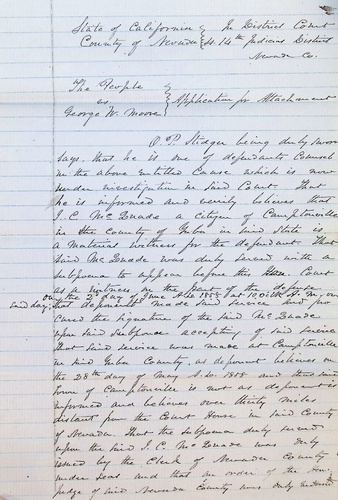 State of California } In District Court
County of Nevada } 14th Judicial District
Nevada Co.
The People
vs
George W. Moore } Application for Attachment
O. P. Stidger being duly sworn
says that he is one of defendants Counsel
in the above entitled Cause which is now
under investigation in said Court. That
he is informed and verily believes that
J. C. McQuade a citizen of Camptonville
in the county of Yuba in said State is
a material witness for the defendant. That
said McQuade was duly served with a
subpoena to appear before this Court
as a witness on the part of the defense
on the 2d day of June A.D. 1858 at 10 o'clk A.M. on
said day, that deponent made said service and pro
cured the signature of the said McQuade
upon said subpoena accepting of said service
that said service was made at Camptonville
in said Yuba County, as deponent believes on
the 28th day of May A.D. 1858 and that said
town of Camptonville is not as deponent is
informed and believes over thirty miles
distant from the Court House in said County
of Nevada. That the subpoena duly served
upon the said J. C. McQuade was duly
issued by the Clerk of Nevada County
under seal and that an order of the Hon.
judge of said Nevada County was duly